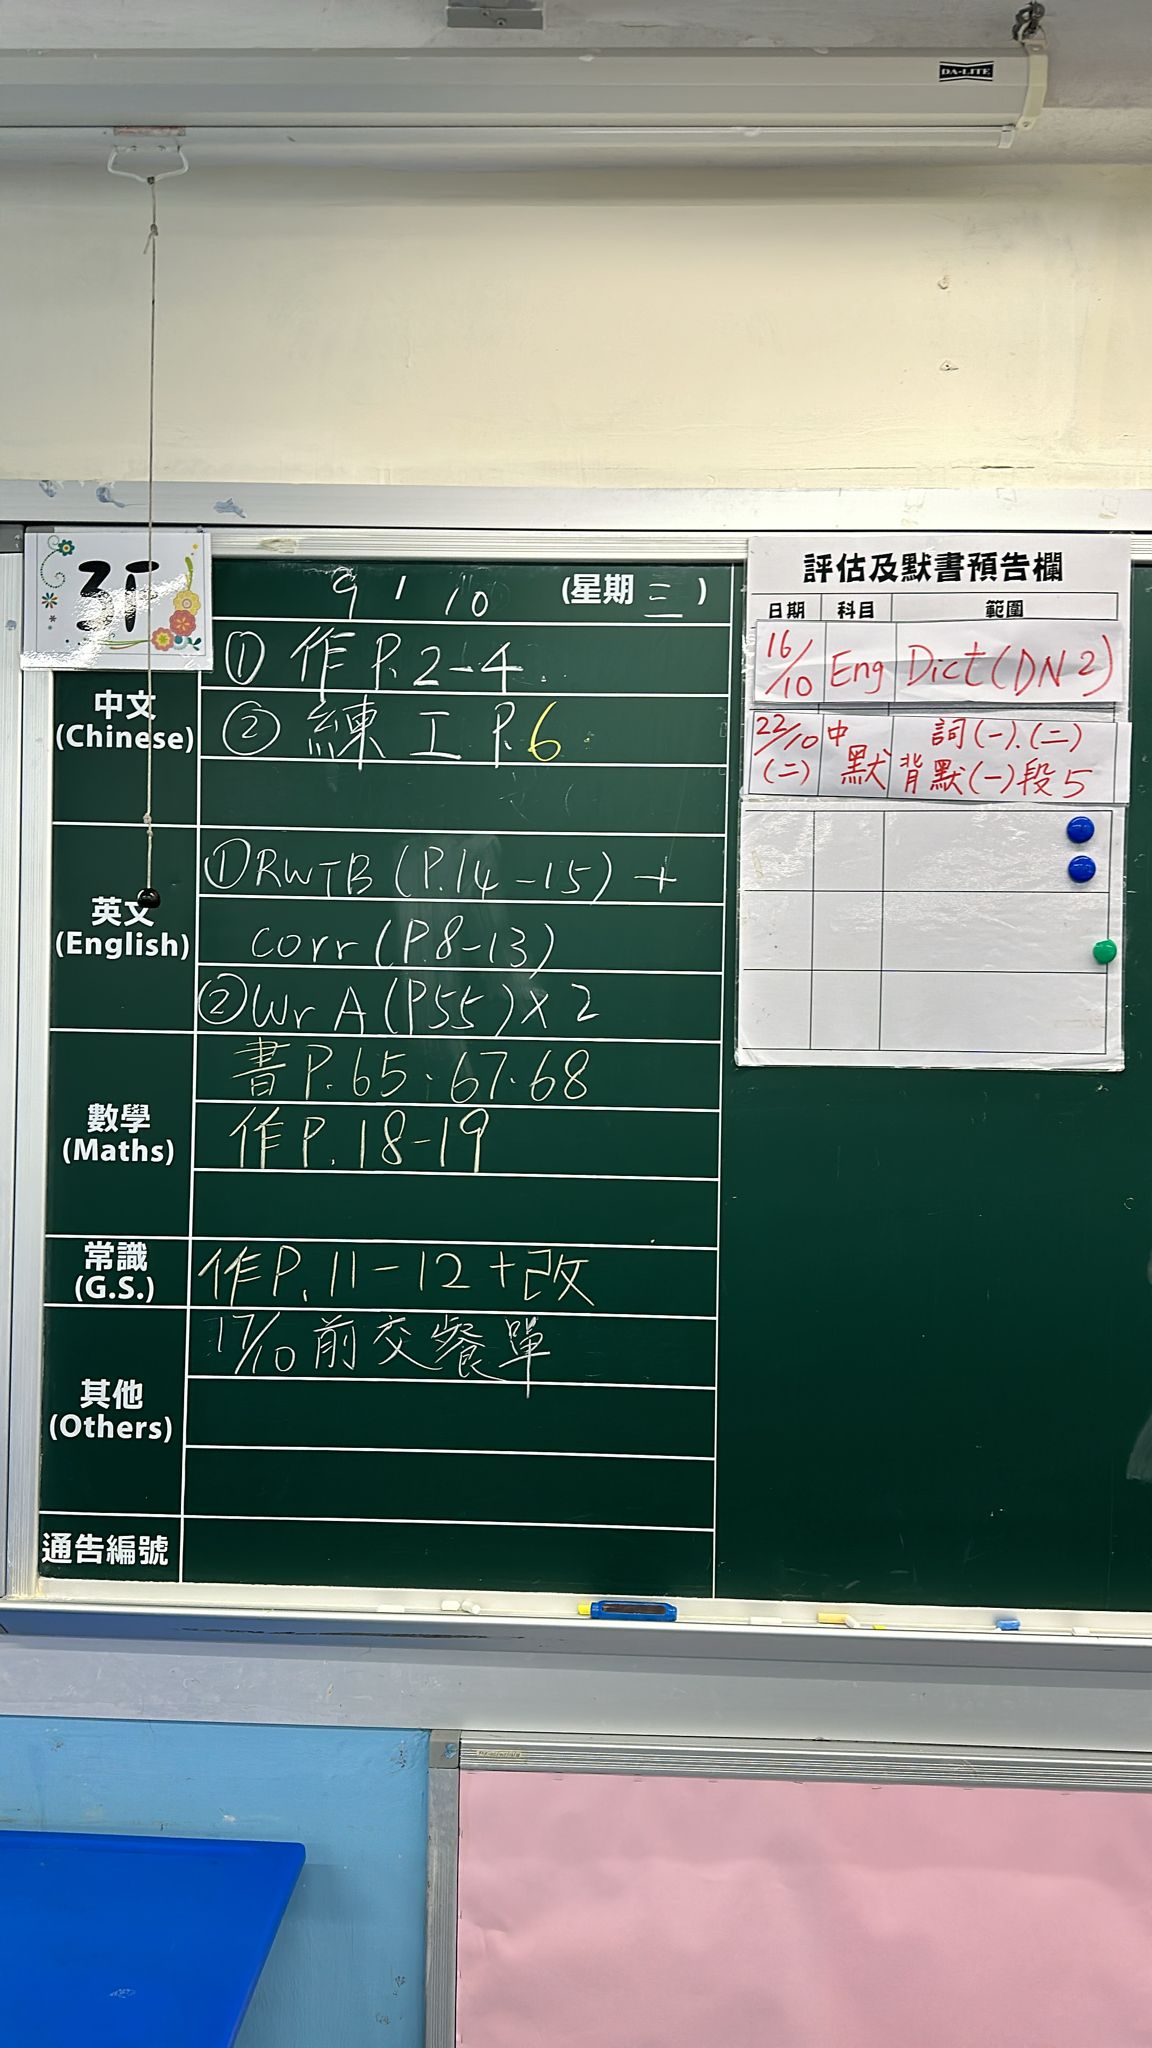 DA-LITE
3F
9 / 10 (星期 三 )
中文
(Chinese)
① 作 P.2-4
② 練工 P.6
英文
(English)
① RWTB (P.14-15) +
corr (P.8-13)
② Wr A (P55) X 2
數學
(Maths)
書 P.65.67.68
作 P.18-19
常識
(G.S.)
作P.11-12+改
其他
(Others)
17/10 前交餐單
通告編號
評估及默書預告欄
日期 科目 範圍
16/10 Eng Dict (DN 2)
22/10 (二) 中默 詞(一).(二)
背默(一)段5